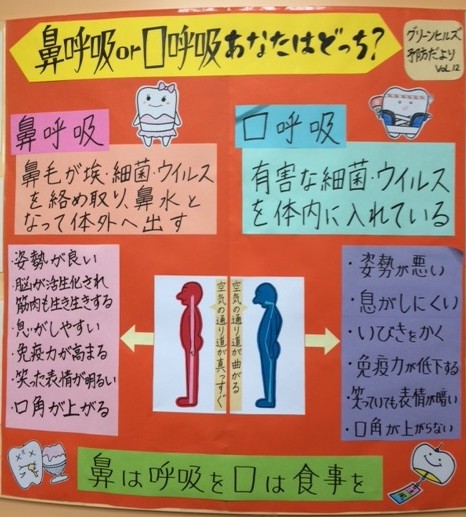 鼻呼吸or口呼吸あなたはどっち?
グリーンヒルズ
予防だより
VOL.12
鼻呼吸
鼻毛が埃・細菌・ウイルス
を絡め取り、鼻水と
なって体外へ出す
口呼吸
有害な細菌・ウイルス
を体内に入れている
・姿勢が良い
・脳が活性化され
筋肉も生き生きする
・息がしやすい
・免疫力が高まる
・笑った表情が明るい
・口角が上がる
空気の通り道が真っすぐ
空気の通り道が曲がる
・姿勢が悪い
・息がしにくい
・いびきをかく
・免疫力が低下する
・笑っていても表情が暗い
・口角が上がらない
鼻は呼吸を口は食事を